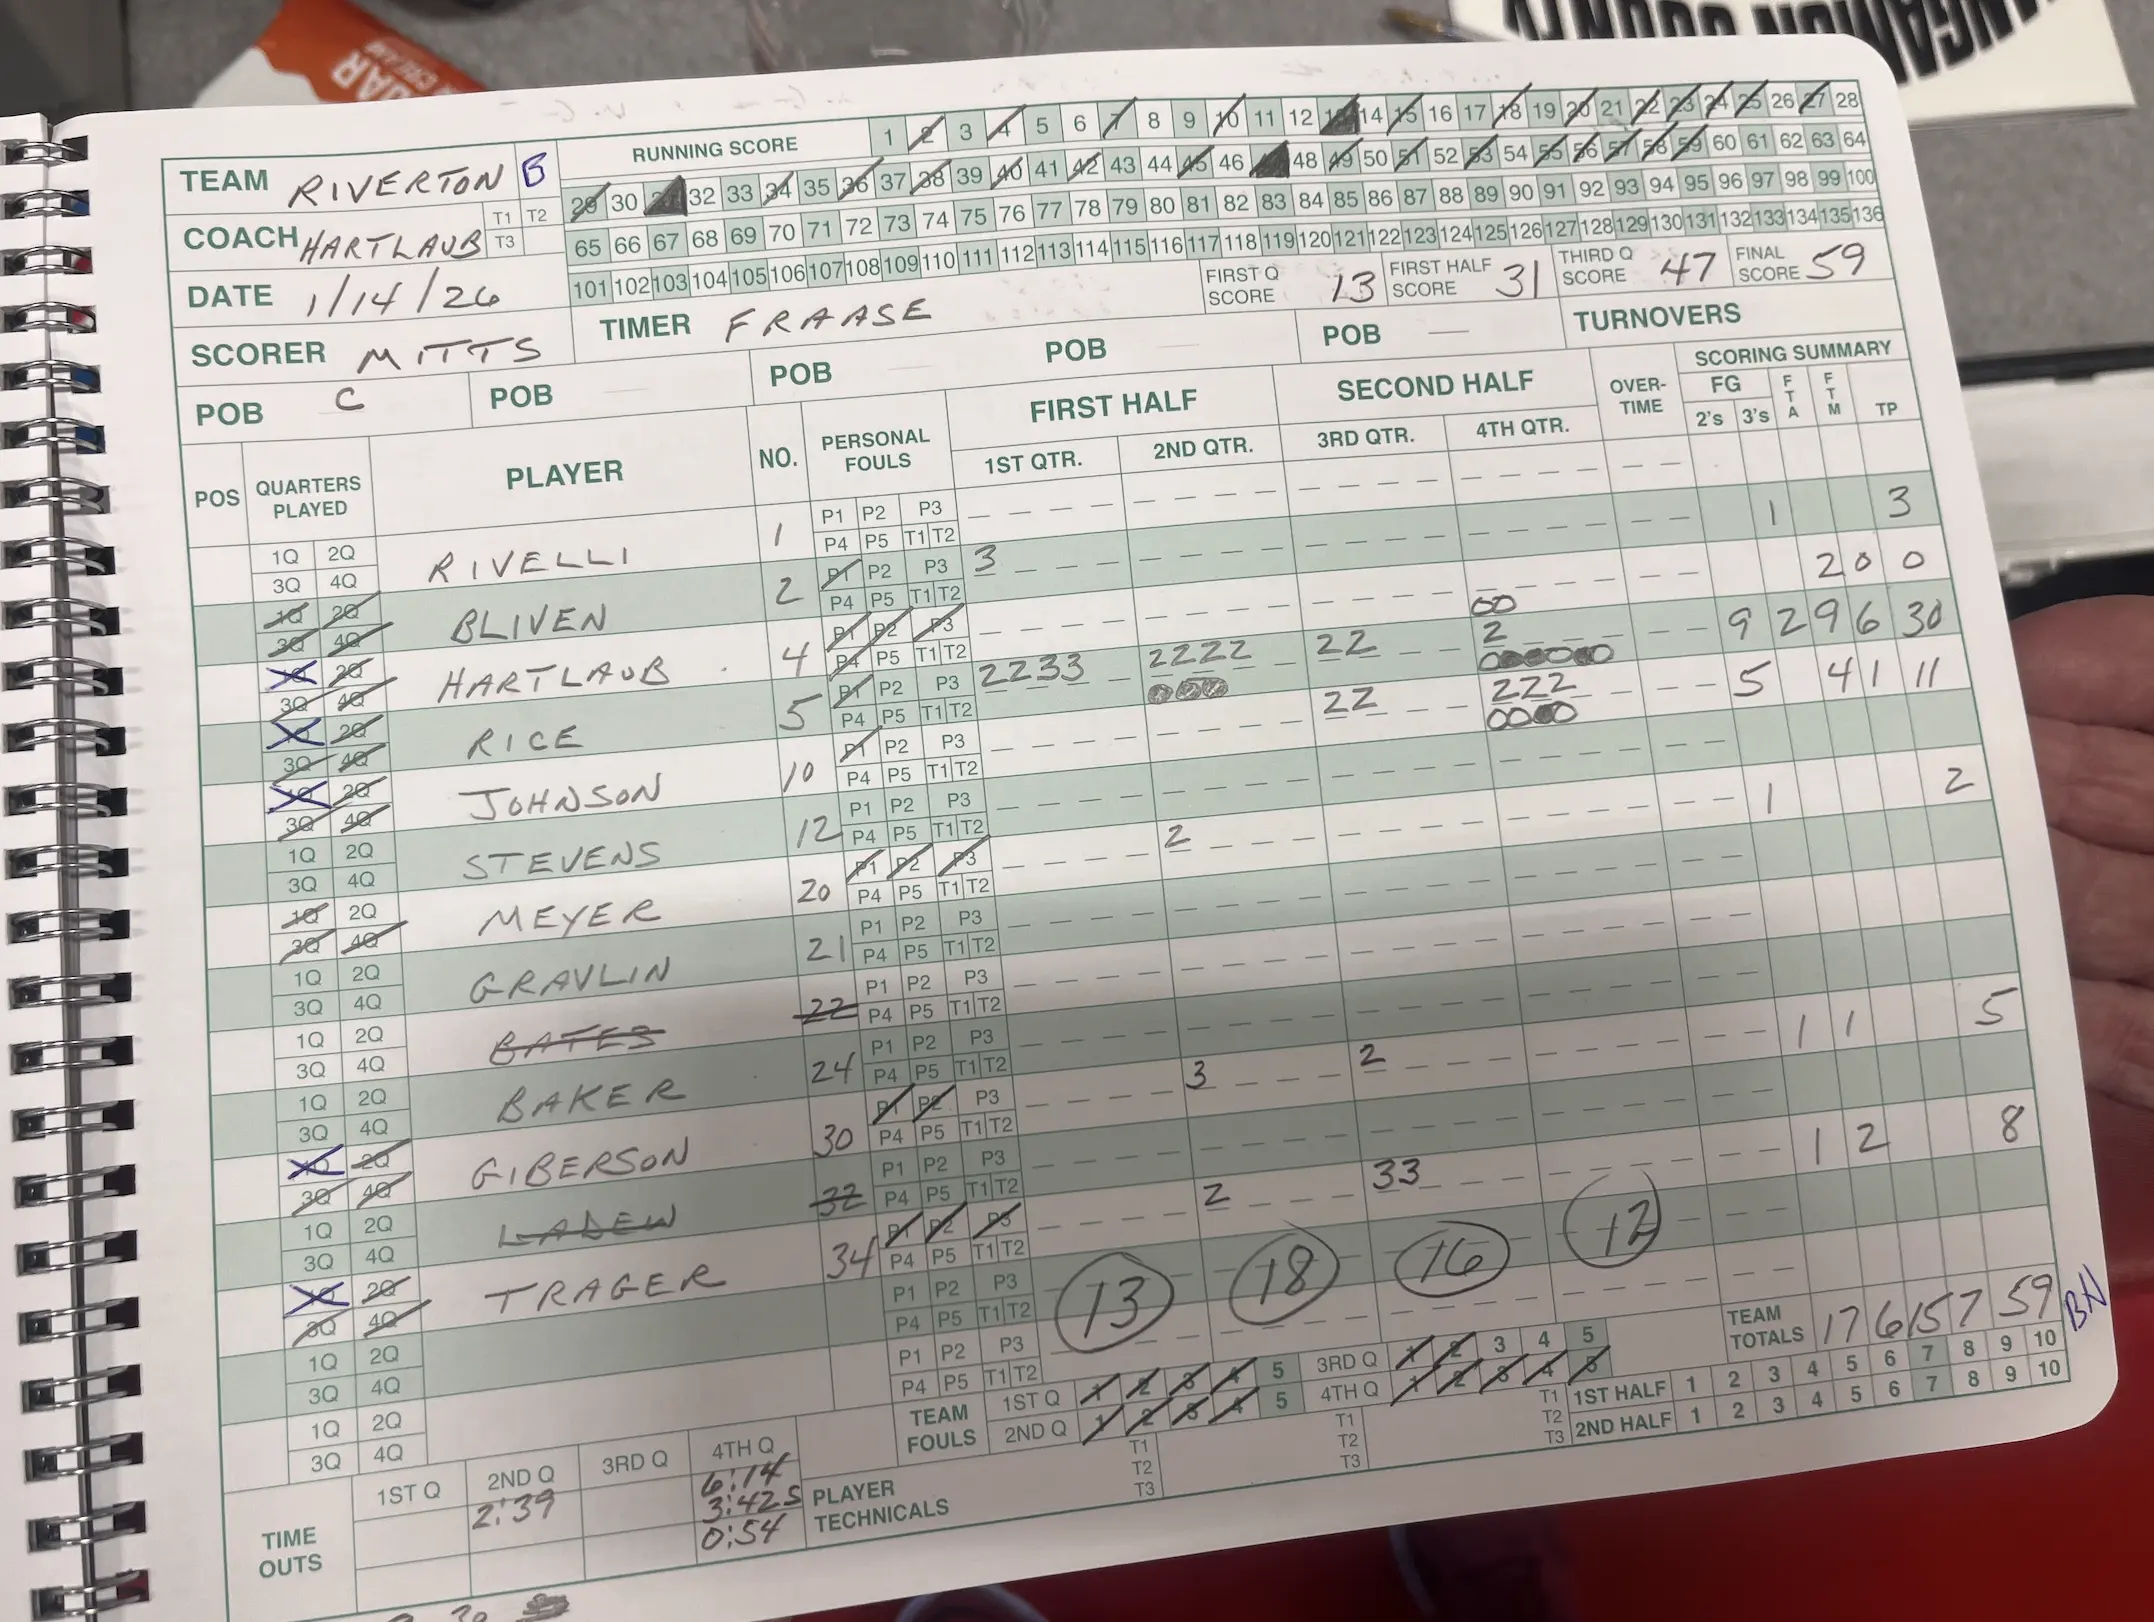 TEAM RIVERTON B
RUNNING SCORE
1 2 3 4 5 6 7 8 9 10 11 12 13 14 15 16 17 18 19 20 21 22 23 24 25 26 27 28
29 30 31 32 33 34 35 36 37 38 39 40 41 42 43 44 45 46 48 49 50 51 52 53 54 55 56 57 58 59 60 61 62 63 64
65 66 67 68 69 70 71 72 73 74 75 76 77 78 79 80 81 82 83 84 85 86 87 88 89 90 91 92 93 94 95 96 97 98 99 100
101 102 103 104 105 106 107 108 109 110 111 112 113 114 115 116 117 118 119 120 121 122 123 124 125 126 127 128 129 130 131 132 133 134 135 136
COACH HARTLAUB T1 T2 T3
DATE 1/14/26
FIRST Q SCORE 13 FIRST HALF SCORE 31 THIRD Q SCORE 47 FINAL SCORE 59
SCORER MITTS TIMER FRAASE
POB C POB POB POB POB TURNOVERS
POS QUARTERS PLAYED PLAYER NO. PERSONAL FOULS FIRST HALF SECOND HALF OVER-TIME SCORING SUMMARY
1ST QTR. 2ND QTR. 3RD QTR. 4TH QTR. FG 2's 3's FTA FTM TP
1Q 2Q 3Q 4Q RIVELLI 1 P1 P2 P3 P4 P5 T1 T2
1Q 2Q 3Q 4Q BLIVEN 2 P1 P2 P3 P4 P5 T1 T2 3 1 3
1Q 2Q 3Q 4Q HARTLAUB 4 P1 P2 P3 P4 P5 T1 T2 00 2 0 0
1Q 2Q 3Q 4Q RICE 5 P1 P2 P3 P4 P5 T1 T2 2233 2222 22 2 9 2 9 6 30
1Q 2Q 3Q 4Q JOHNSON 10 P1 P2 P3 P4 P5 T1 T2 22 222 5 4 1 11
1Q 2Q 3Q 4Q STEVENS 12 P1 P2 P3 P4 P5 T1 T2
1Q 2Q 3Q 4Q MEYER 20 P1 P2 P3 P4 P5 T1 T2 2 1 2
1Q 2Q 3Q 4Q GRAVLIN 21 P1 P2 P3 P4 P5 T1 T2
1Q 2Q 3Q 4Q BATES 22 P1 P2 P3 P4 P5 T1 T2
1Q 2Q 3Q 4Q BAKER 24 P1 P2 P3 P4 P5 T1 T2
1Q 2Q 3Q 4Q GIBERSON 30 P1 P2 P3 P4 P5 T1 T2 3 2 1 1 5
1Q 2Q 3Q 4Q LADEW 32 P1 P2 P3 P4 P5 T1 T2
1Q 2Q 3Q 4Q TRAGER 34 P1 P2 P3 P4 P5 T1 T2 2 33 1 2 8
1Q 2Q 3Q 4Q P1 P2 P3 P4 P5 T1 T2 13 18 16 12
1Q 2Q 3Q 4Q P1 P2 P3 P4 P5 T1 T2
TEAM TOTALS 17 6 15 7 59 BN
TEAM FOULS 1ST Q 1 2 3 4 5 3RD Q 1 2 3 4 5
2ND Q 1 2 3 4 5 4TH Q 1 2 3 4 5
1ST HALF 1 2 3 4 5 6 7 8 9 10
2ND HALF 1 2 3 4 5 6 7 8 9 10
TIME OUTS 1ST Q 2ND Q 3RD Q 4TH Q
2:39 6:14
3:42 S
0:54
PLAYER TECHNICALS T1 T2 T3 T1 T2 T3 T1 T2 T3